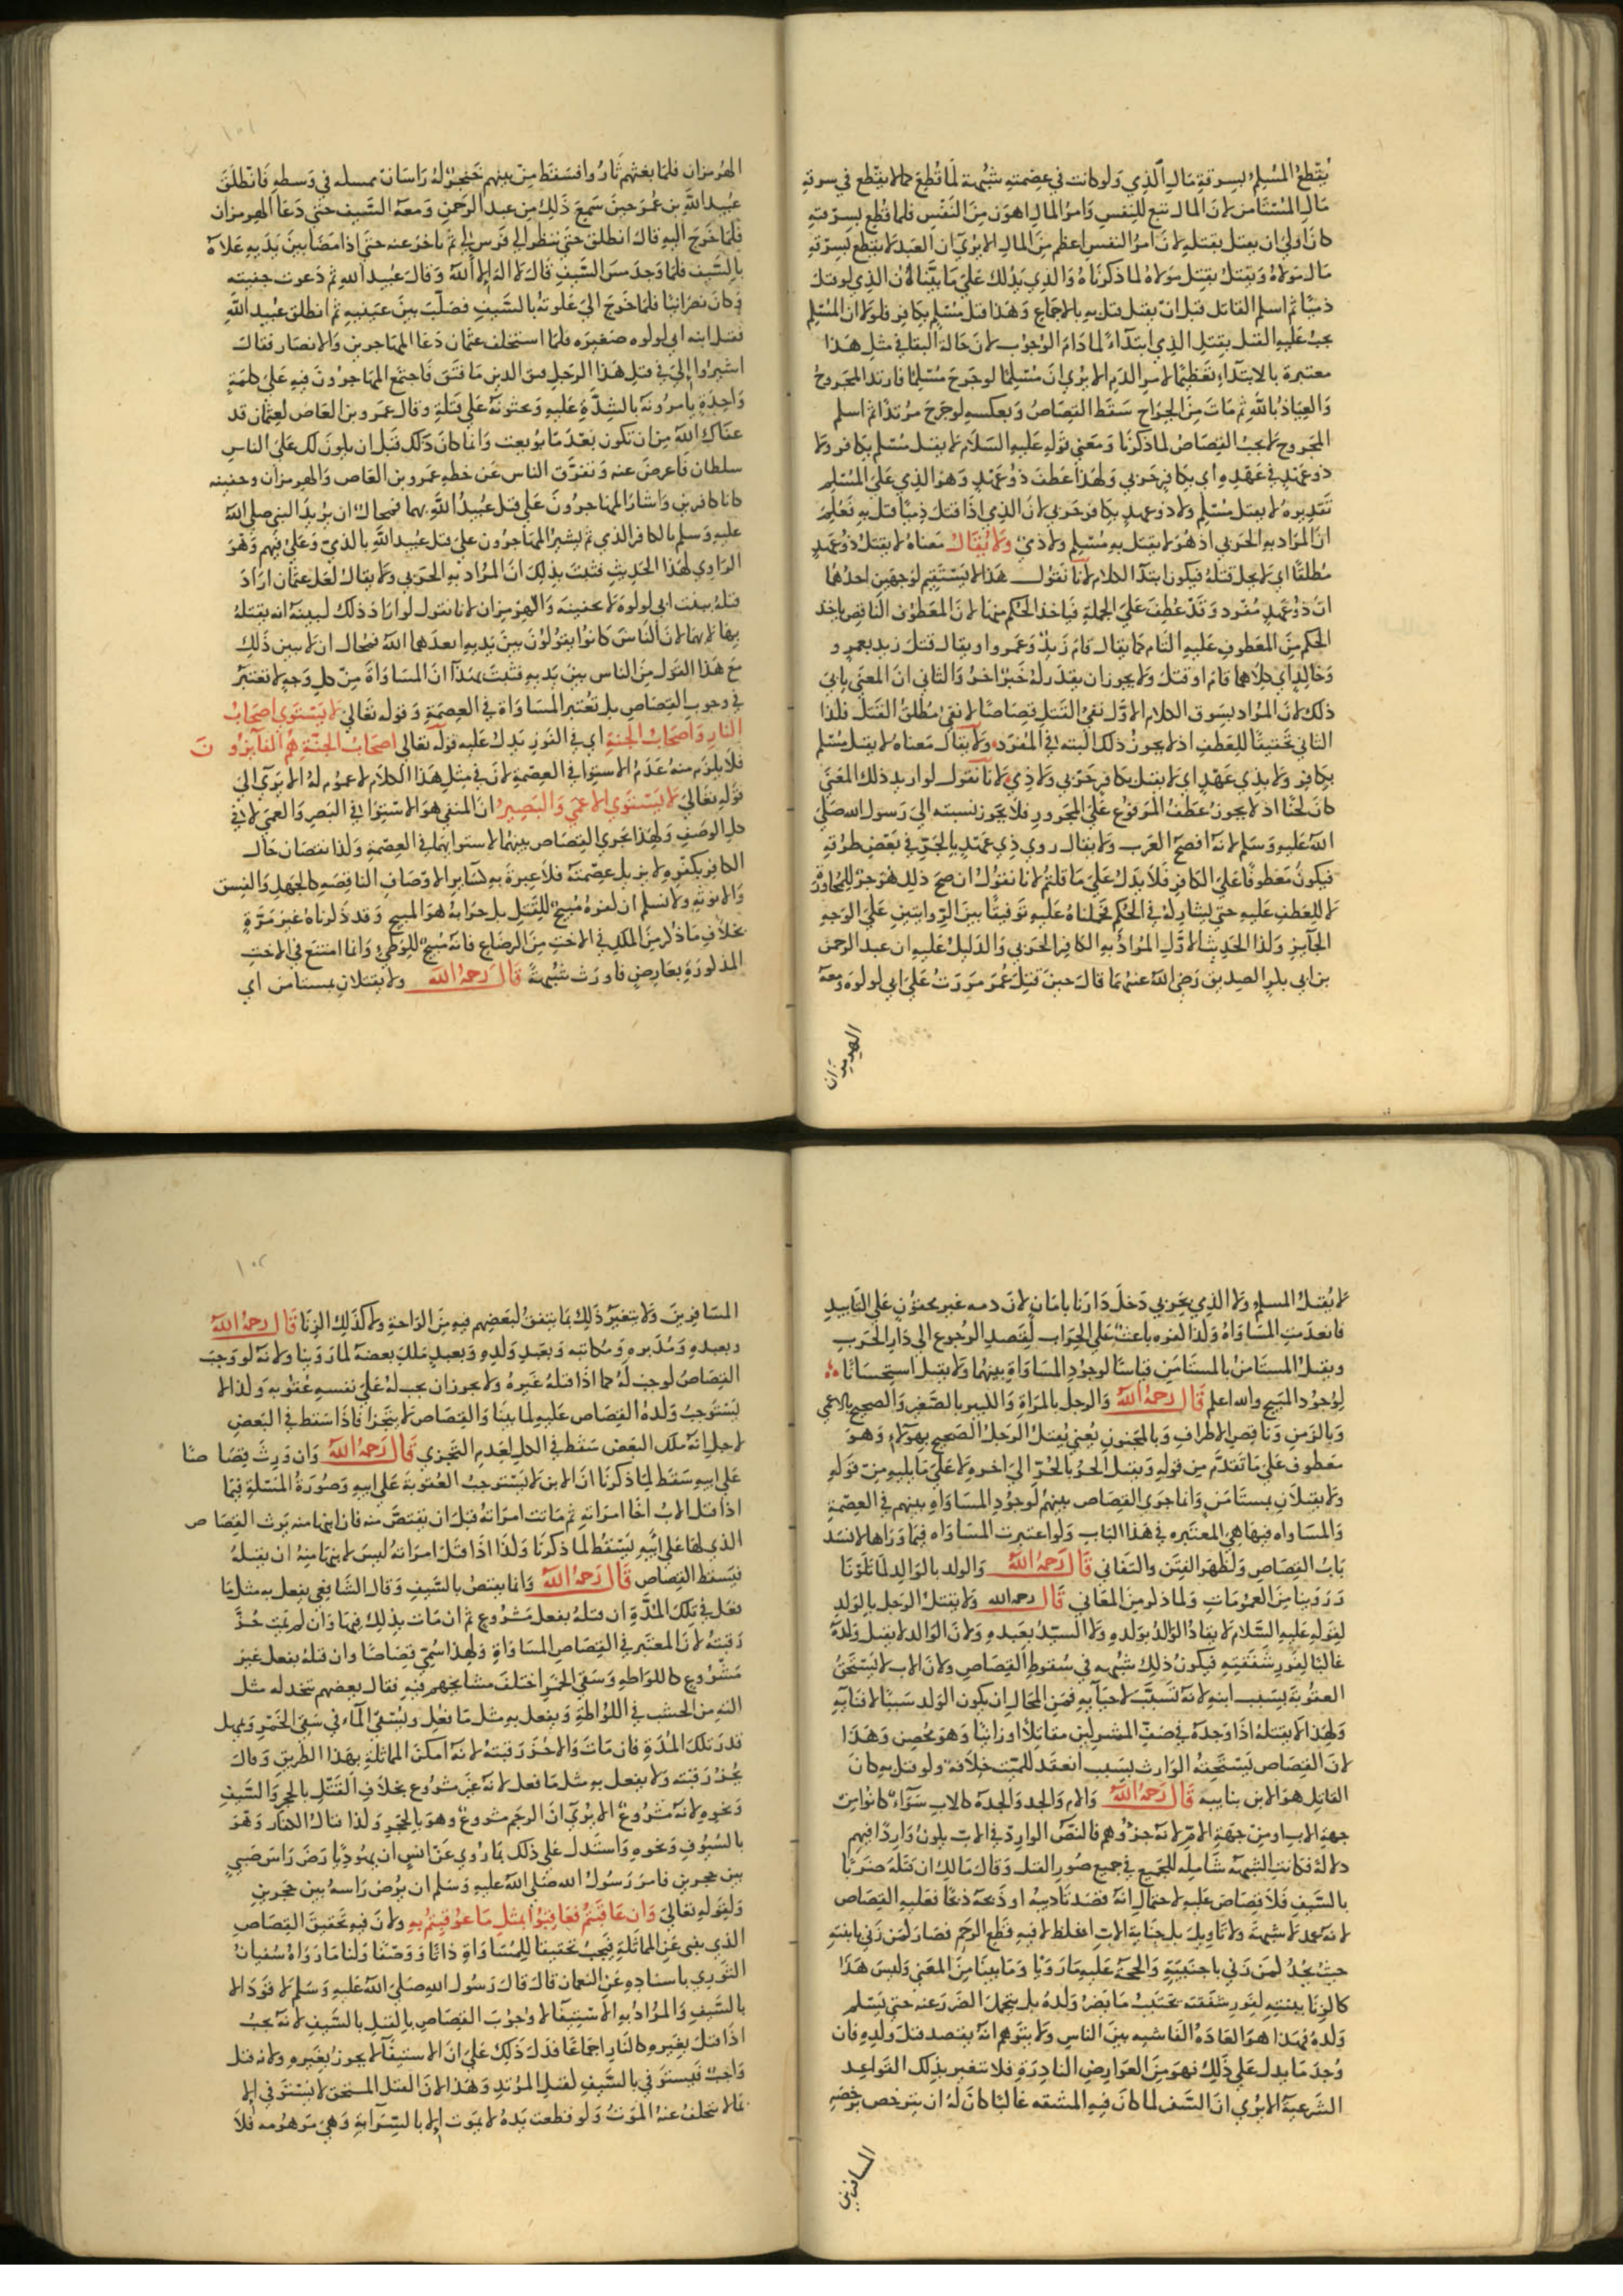 يُقطعُ المُسْلِمُ بسِرقةِ مَالِ الذِي وَلوكانت في عِصْمتهِ شُبْهة لمَا قُطِعَ كمالايقطع في سرقةِ
مَالِ المُسْتَامَن لانَ المالَ تبَع للنَفسِ وَامرُ المالِ اهوَن مِنَ النَفْسِ فلما قُطِع بسِرقتهِ
كانَ اولى ان يقتل بقتلهِ لانَ امرُ النفسِ اعظم مِنَ المالِ الا يرَي ان العَبدَ لا يقطع بسِرقةِ
مَال مَولاهُ وَيقتلُ بقتلِ مَولاهُ لماذكرنَاهُ وَالذي يدُلك عَلى مَا بَيَّنا انُ الذِي لوقتلَ
ذميًا ثم اسلم القاتل قبل انْ يقتل قتل بهِ بالاجماعِ وَهَذا قتل مُسْلِم بكافِر فلولا ان المُسْلِم
يجبُ عَليهِ القتل بقِتلِ الذِي ابتدَاءً لمادَامَ الوُجوب لانَ حَالةَ البقا في مثلِ هَذا
معتبرة بالابتدَاءِ تعَظيمًا لامرِ الدَمِ الا يُرَي انَ مُسْلِمًا لوجَرحَ مُسْلِمًا فارتد المَجروحُ
وَالعِيَاذُ باللهِ ثم مَاتَ مِنَ الجرَاحِ سَقَط القِصَاصُ وَبعكسهِ لوجَرَحَ مُرتدًا ثم اسلم
المجَروح لا يجبُ القِصَاصُ لماذكرنَا وَمَعنى قولهِ عَليهِ السَلام لا يقتل مُسْلم بكافر ولا
ذوعَهْدٍ في عَهْدهِ اي بكافِرٍ حَربي وَلهَذا عَطفَ ذوُ عَهْدٍ وَهوَ الذِي عَلى المُسْلِم
تقدِيرهُ لا يقتل مُسْلِم ولا ذوعهدٍ بكافر حَربي لانَ الذِي اذَا قتلَ ذِميًا قتل بهِ فعُلِمَ
انَ المُرَاد بهِ الحَربى اذ هُوَ لا يقتل بهِ مُسْلِم ولا ذِمي وَلا يُقَالُ مَعناهُ لا يقتلُ ذوُعَهدٍ
مُطلقًا اي لا يحل قتلهُ فيكون ابتدَا الكلام لانَا نَقولُ هَذا لا يَسْتقِيم لوَجهَين احدُهُما
انَ ذوُ عَهْدٍ مفْرد وَقدْ عُطِفَ عَلى الجملةِ فيَاخذ الحكم منهَا لانَ المَعطوُف الناقِص ياخذ
الحكم مِنَ المَعطوفِ عَليهِ التَام كما يقال قامَ زَيدٌ وَعَمرو او يقال قتلَ زيد بعمروٍ و
وَخالدٍ اي كلاهُما قامَ اوقتلَ وَلا يجوز ان يقدَر لهُ خَبرٌ اخرُ وَالثاني انَ المعنى يابى
ذلك لانَ المُراد بسَوقِ الكلام الاوَّل نفيُ القَتلِ قِصَاصًا لا نفيُ مُطلقُ القتلِ فلذا
الثاني تحقيقًا للعَطفِ اذ لا يجوزُ ذلك البته في المُفرَد وَلا يقالُ مَعناهُ لا يقتل مُسْلم
بكافِر وَلا بذِي عَهْدٍ اي لا يقتل بكافِرٍ حَرْبي وَلا ذِمي لانَا نقَولُ لو اريد ذلك المَعنَى
كانَ لحنًا اذ لا يجوزُ عَطفُ المرفوُع عَلى المجرورِ فلا يَجوز نسبته الى رسول الله صَلى
اللهُ عَليهِ وَسَلم لانهُ افصَحُ العَرب وَلا يقال روي ذِي عَهْدٍ بالجَرّ في بعَضِ طرُقهِ
فيكونُ مَعَطوفًا عَلى الكافِرِ فَلا يدَلُ عَلى مَا قلتم لانا نقوُل ان صحَ ذلِك هُوَ جرٌ للمجُاورَة
لا للعَطفِ عَليهِ حتى يشاركهُ في الحُكمِ فحَملناهُ عَليهِ توَفيقًا بينَ الرّوَايتين عَلى الوَجهِ
الجَايز وَلذا الحَديث الاوّل المُرادُ بهِ الكافِر الحَربي وَالدَليلُ عَليهِ ان عبد الرحمن
بن ابي بكرٍ الصِديق رَضيَ اللهُ عَنهُما قالَ حينَ قتِلَ عُمَرَ مَررَتُ عَلى ابي لولوه ومعهُ
الهرمزان
١٠١
الهُرمزان فلمَا بغتهُم ثَارُوا فسَقط مِن بينهم خَنجَرٌ لهُ رَاسَانِ ممسكه في وَسطهِ فَانطلقَ
عبيد اللهِ بن عُمَرَ حينَ سَمعَ ذَلكَ مِن عبد الرَحمنِ وَمعهُ السَيف حَتى دَعَا الهرمزان
فلمَا خَرجَ اليهِ قالَ انطلق حَتى نَنظر الى فرَسٍ لى ثم تاخرَ عَنهُ حتى اذا مضَا بَينَ يدَيهِ عَلاهُ
بالسَّيفِ فلمَا وَجدَ مسَّ السَّيفِ قالَ لا الهَ إلا اللهُ وَقالَ عبيد اللهِ ثم دَعوت جفينه
وَكانَ نصرَانيًا فلمَا خَرجَ الىَ عَلوتهُ بالسَّيفِ فصَلّبَ بينَ عَينيهِ ثم انطلق عبيد اللهِ
فقتل ابنه ابى لولوه صَغيرَه فلمَا استخلف عثمان دَعَا المهَاجرين وَالانصَار فقالَ
اشيرُوا إليّ في قتلِ هَذا الرَجلِ فتق الدين مَا فتَقَ فَاجتمع المهَاجرُونَ فيهِ عَلى كلمَةٍ
وَاحدَةٍ يامرُونهُ بالشِدّةِ عَليهِ وَيَحثونهُ عَلى قتلهِ وقال عمَرو بن العَاص لعِثمان قد
عفَاك اللهُ مِن ان تكون بَعْدَ مَا بُويعت وَانما كانَ ذَلك قَبْل ان يكون لك عَلى الناسِ
سلطان فَاعرضَ عنه وَتفرّق الناس عَن خطبهِ عَمرو بن العَاص وَالهرمزان وجفينه
كانا كافِرين وَاشارَ المهَاجرُونَ عَلى قتل عُبيدُ اللهِ بهما فمحالٌ ان يُريدَ النبي صلى اللهُ
عليهِ وَسلم بالكافر الذِي ثم يشير المهَاجرُون على قتل عُبيد اللهِ بالذِميّ وَعَلي فيهم وَهُوَ
الرَاوِي لهَذا الحَديثِ فثبتَ بذلِك انَ المرَاد بهِ الحَربي وَلا يقال لعَل عثمان ارَادَ
قتلهُ ببنت ابى لولوة لا بحفينه وَالهرمزان لانا نقول لوارادَ ذلك لبيّنهُ انه يقتلهُ
بِهَا لا بهما لانَ الناسَ كانوُا يقوُلوُنَ بَينَ يدَيهِ ابعدَهما اللهُ فمُحال ان لا يبين ذَلك
مَعَ هَذا القَول مِنَ الناس بينَ يدَيهِ فثبتَ بهذَا انَ المسَاوَاةَ مِن كلِ وَجهٍ لا تُعتبَر
في وجوبِ القِصَاصِ بل تُعتبرُ المسَاوَاة في العِصْمةِ وَقوله تعَالى لا يَسْتَوي اصحَابُ
النارِ وَاصحَابُ الجنةِ اي في الفَوز يَدلُ عَليهِ قولهُ تعَالى اصحَابُ الجَنَّةِ هُمُ الفَآئِزُونَ
فلا يَلزَم منهُ عَدَمُ الاستوَا في العِصْمةِ لانَ في مِثلِ هَذا الكلام لا عمُوم لهُ الا يَرَي الىَ
قولهِ تَعَالى لا يَسْتوَي الاعْمَى وَالبَصيرُ انَ المنفي هوَ الاسْتِوَا في البَصر وَالعمَى لا في
كلِ الوصَفِ وَلهَذا يَجري القِصَاص بينهُما لاستوايهمَا في العِصْمةِ وَلذا نقصَان حَال
الكافر بكُفرهِ لا يزيل عصْمَتهُ فلا عِبرَةَ بهِ كسَايرِ الاوْصَافِ الناقِصَه كالجَهلِ وَالفِسق
وَالانوثةِ وَلا نسَلم ان كفرهُ مُبيحٌ للقَتلِ بل حرَابهُ هوَ المبيح وَقد ذكرناهُ غيرَ مَرّةٍ
بخلافِ مَاذكر مِنَ الملكِ في الاختِ مِنَ الرضَاعِ فانهُ مُبيحٌ للوَطئِ وَانما امتنعَ في الاختِ
المذكورَةِ بعَارِضٍ فاورَث شبهةً قَالَ رَحمهُ اللهُ ولا يقتلانِ بمستامَن اي
لا يُقتلُ المسلم وَلا الذِي بحَربي دَخلَ دَارنا بامَانٍ لانَ دمه غير محقوُنٍ عَلى التابيدِ
فانعدمَتِ المسَاوَاهُ وَلذا كفره باعثٌ عَلى الحِرَاب لقصدِ الرُجوع الى دَارِ الحَربِ
ويقتلُ المستَامَن بالمستَامَنِ قيَاسًا لوجُودِ المسَاوَاةِ بينهمَا وَلا يقتل استحسَانًا
لِوُجُودِ المبيحِ والله اعلم قَالَ رَحمهُ اللهُ وَالرجل بالمرَاةِ وَالكبير بالصَغيرِ وَالصحيح بالاعمى
وَبالزَمنِ وَناقِصِ الاطرافِ وَبالمجنونِ يَعني يُقتلُ الرَجلُ الصَحيح بِهولاءِ وَهوَ
مَعطوف عَلى مَا تقدَّم مِن قولهِ وَيقتل الحُرُ بالحُرِّ الى اخرهِ لا عَلى مَا يليهِ مِن قولهِ
ولا يقتلانِ بمستَامَنٍ وَانما جَري القِصَاص بينهُم لوجُودِ المسَاوَاهِ بينهم في العِصْمةِ
وَالمسَاواه فيها هي المعتبَره في هَذا البَابِ وَلو اعتبرت المسَاوَاه فيمَا وَراهَا لانسَد
بَابُ القِصَاصِ وَلظهَرَ الفِتن والتَفاني قَالَ رَحمهُ اللهُ والولد بالوَالدِ لمَا تَلَوْنَا
وَرَوَينا مِنَ العمُومَاتِ وَلماذكر مِنَ المعَاني قالَ رحمه الله وَلا يقتلُ الرَجل بالوَلدِ
لقِولهِ عَليهِ السَّلام لا يقادُ الوَالدُ بوَلدِهِ وَلا السيّدُ بعَبدِهِ وَلانَ الوَالد لا يقتل وَلدَهُ
غالبًا لوفُورِ شفَقتِهِ فيكونُ ذَلك شبُهه في سُقوطِ القِصَاصِ وَلانَ الاب لا يَسْتَحقُ
العقُوبَة بِسَبب ابنهِ لانهُ تسبَّبَ لاحيَآيهِ فمَنَ المحَالِ ان يكون الوَلد سَببًا لافنَايهِ
وَلهَذا لا يقتلهُ اذَا وَجدَهُ في صَفِّ المشركِين مقاتِلًا او زانيًا وَهوَ محُصِن وَهَذا
لانَ القِصَاص يَسْتَحقهُ الوَارث بسَبب انعقَد للميّت خِلافه ولو قتل بهِ كانَ
القاتِل هوَ الابن بنايبه قَالَ رَحمهُ اللهُ وَالام وَالجَد وَالجدَه كالابِ سَوَآءٌ كانوُا مِن
جهَةِ الابِ او مِن جهَةِ الامّ لانهُ جزؤهم فالنَصُ الوَارد في الابِ يكونُ وَاردًا فيهم
دلالةً فكانتِ الشبهه شَامِله للجميع في جميع صُورِ القتل وَقالَ مَالك ان قتَلهُ ضرَبًا
بالسَّيفِ فلا قِصَاصَ عَليهِ لاحتمالِ انهُ قصَد تَاديبهُ او ذَبحَهُ ذبحًا فعَليهِ القِصَاص
لانهُ عمد لا شبهه وَلا تَاوِيل بَل جنَايةُ الابِ اغلظ لا فيهِ قطع الرَحِمِ فصَارَ كمَن زَني بابنتهِ
حيث يُحَدُ كمَن زَني باجنَبيّةِ وَالحجَّةُ عَليهِ مَا رَوَينا وَمَا بينَّا مِنَ المعَني وَليسَ هَذا
كالزنَا ببنتِهِ لوفُورِ شفقتهِ تجتنبُ مَا يَضُر وَلدهُ بل يتحمل الضرَر عنه حتى يَسْلم
وَلدهُ فهَذا هوَ العَادَهُ الفَاشيه بينَ الناسِ وَلا يتوَهم انهُ يقصد قتلَ ولدِهِ فان
وُجدَ مَا يدل عَلى ذَلك فهوَ مِنَ العَوارِضِ النادِرَةِ فلا تتغير بذَلك القَوَاعِد
الشَرعيةُ الا يُرَي انَ السَفر لما كانَ فيهِ المشقه غالبًا كانَ لهُ ان يترخصَ برخصَهِ
المسافرين
١٠٢
المسَافِرينَ وَلا يتغيَّر ذَلك بما يتفقُ لبَعضِهم فيهِ مِنَ الرَاحةِ ولا كذَلكَ الزنَا قَالَ رحمهُ اللهُ
وبعبدِهِ وَمُدَبرهِ وَمكاتبهِ وَبعَبدِ وَلدهِ وَبعبدٍ ملك بعضهُ لمارَوَينا ولانهُ لو وَجبَ
القِصَاصُ لوجبَ لهُ كما اذَا قتلهُ غَيرهُ ولا يجوزان يجب لهُ عَلى نفسهِ عقوُبه وَلذا لا
يَسْتَوجبُ وَلدهُ القِصَاص عَليهِ لمَا بينّا وَالقِصَاص لا يتَجزَا فَاذَا سَقط في البَعضِ
لاجل انهُ ملك البَعض سَقط في الكلِ لعَدَمِ التَجزي قَالَ رَحمهُ اللهُ وَان وَرِثَ قِصَاصًا
عَلى ابيهِ سَقط لمِاذكرنَا انَ الابن لا يَسْتوجبُ العُقوبَةَ عَلى ابيهِ وَصُورَةُ المَسْئلةِ فيمَا
اذا قتل الابُ اخا امرَاتهِ ثم مَاتت امرَاتهُ قبلَ ان يَقتصَّ منه فان ابنهَا منه يرث القِصَاص
الذي لهَا عَلى ابيهِ يَسْقط لماذكرنَا وَلذَا اذَا قتلَ امرَاتهُ ليسَ لابنهَا مِنهُ ان يقتلهُ
فيسَقط القِصَاص قَالَ رَحمهُ اللهُ وَانما يقتصُ بالسَّيفِ وَقالَ الشَافِعي يفعل بهِ مثل مَا
فعَل في تلِك المُدَّةِ ان قتلهُ بفعل مَشرُوع ثم ان مَات بذِلك فبهَا وَان لم يَمت حُزَّ
رَقبَتهُ لانَ المعتَبر في القِصَاصِ المسَاوَاة وَلهَذا سُمّيَ قِصَاصًا وان قتلهُ بفعل غير
مشرُوع كاللوَاطهِ وَسَقي الخَمرِ اختلفَ مشَايخهم فيهِ فقال بعضهم تتخذ له مثل
الته مِن الخشب في اللوَاطةِ وَيفعل بهِ مثل مَا فعَل ويُسْقَي المآء في سَقي الخَمرِ وَيمهل
قدرَ تلك المُدَةِ فان مَاتَ وَالا حُزَّ رَقبَتهُ لانهُ امكنَ المماثلةِ بهَذا الطريقِ وَقالَ
يحُزُ رَقبَته ولا يفعل بهِ مثل مَا فعل لانهُ غير مشرُوع بخلافِ القَتلِ بالحجرِ وَالسَّيفِ
وَنحوِهِ لانهُ مشرُوعٌ الا يُرَي انَ الرجَم مشروُعٌ وَهوَ بالحجَرِ وَلذا قتالُ الكفار وَهُوَ
بالسُيوُفِ وَنحوهِ وَاستدل عَلى ذَلك بمارُوي عَن انسٍ ان يهوُديًا رَضَّ رَاسَ صَبيٍ
بين حَجرين فامرَ رَسُولُ الله صَلى اللهُ عَليهِ وَسَلم ان يرُضَ رَاسهُ بين حَجَرينِ
وَلقِولهِ تعَاليَ وَان عَاقبْتمُ فعَاقِبُوُا بمثلِ مَا عُوقبتمُ بهِ ولانَ فيهِ تحقيقَ القِصَاصِ
الذي ينبى عَنِ المماثَلةِ فيَجبُ تحقيقًا للمُسَاوَاةِ ذاتًا وَوَصْفًا وَلنا مَارَوَاهُ سُفيانُ
الثَوَرِي باسنادِهِ عَن النعمان قالَ قالَ رَسُولُ اللهِ صَلى اللهُ عَليهِ وَسَلم لا قوَدَ الا
بالسَّيفِ وَالمرَادُ بهِ الاسْتِيفَا لا وجُوبَ القِصَاصِ بالقتلِ بالسَّيفِ لانهُ يجبُ
اذَا قتلَ بغَيرهِ كالنَارِ اجماعًا فدَلَ ذَلك عَلى انَ الاستيفَا لا يجوزُ بغَيرهِ ولانه قتل
وَاجبٌ فيَسْتَوفي بالسَّيفِ كقتلِ المرُتدِ وَهَذا لانَ القتلَ المستحق لا يَسْتَوفي إلا
بمَا لا يتخلفُ عنهُ الموَتُ وَلوقطعت يدَهُ لا يمَوت إلا بالسِّرَايةِ وَهيَ مَوهُومه فلا